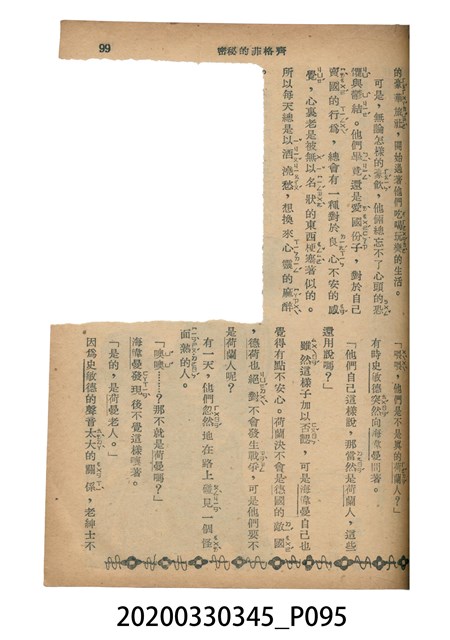 99
密秘的菲格齊
的豪華旅社，開始過著他們吃喝玩樂的生活。
可是，無論怎樣的豪飲，他倆總忘不了心頭的恐
懼與鬱結。他們畢竟還是愛國份子，對於自己
賣國的行為，總會有一種對於良心不安的感
覺，心裏老是被無以名狀的東西梗塞著似的。
所以每天總是以酒澆愁，想換來心靈的麻醉
「喂，他們是不是真的荷蘭人？」
有時史敏德突然向海韋曼問著。
「他們自己這樣說，那當然是荷蘭人，這些
還用說嗎？」
雖然這樣子加以否認，可是海韋曼自己也
覺得有點不安心。荷蘭決不會是德國的敵國
，德荷也絕對不會發生戰爭，可是他們要不
是荷蘭人呢？
有一天，他們忽然地在路上碰見一個怪
面熟的人。
「噢噢……？那不就是荷曼嗎？」
海韋曼發現後不覺這樣嚷著。
「是的，是荷曼老人。」
因為史敏德的聲音太大的關係，老紳士不
20200330345_P095